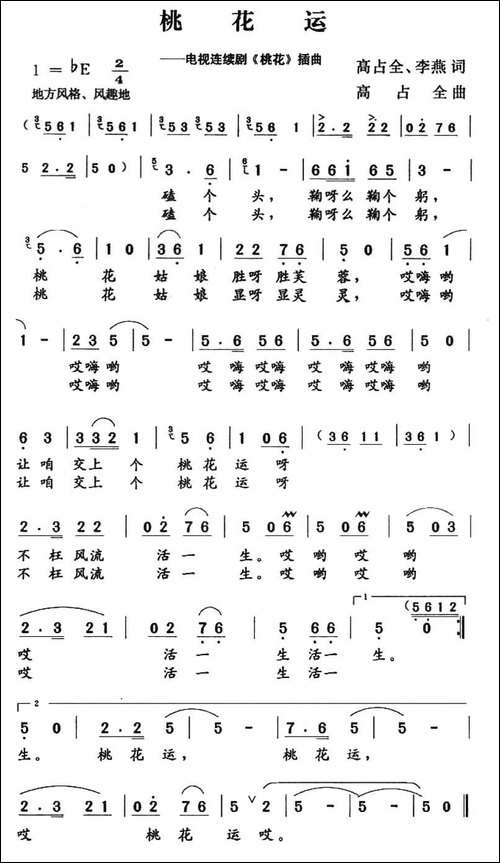 桃花运
——电视连续剧《桃花》插曲
1=♭E 2/4
高占全、李燕词
地方风格、风趣地
高占全曲
(3561 | 3561 | 353 353 | 356 1 | 2.2 22 | 02 76 |
5 2.2 | 50) | 53.6 | 61- | 661 65 | 3- |
磕个头, 鞠呀么鞠个躬,
磕个头, 鞠呀么鞠个躬,
35.6 | 10 | 361 | 22 76 | 50 | 565 |
桃花姑娘胜呀胜芙蓉, 哎嗨哟
桃花姑娘显呀显灵灵, 哎嗨哟
1- | 235 | 5- | 5.6 56 | 5.6 56 | 50 |
哎嗨哟 哎嗨哎嗨哎嗨哎嗨哟
哎嗨哟 哎嗨哎嗨哎嗨哎嗨哟
63 | 332 1 | 35 6 | 1 06 | (36 11 | 361) |
让咱交上个桃花运呀
让咱交上个桃花运呀
2.3 22 | 02 76 | 5 06 | 5 06 | 5 03 |
不枉风流活一生。哎哟哎哟
不枉风流活一生。哎哟哎哟
1 (5612
2.3 21 | 02 76 | 5- | 5 66 | 5 0 :|
哎 活一 生活一生。
哎 活一 生活一
2
50 | 2.2 5 | 5- | 7.6 5 | 5- |
生。 桃花运, 桃花运,
2.3 21 | 02 76 | 5 ∨ 5 | 5- | 5 0 |
哎 桃花运哎。